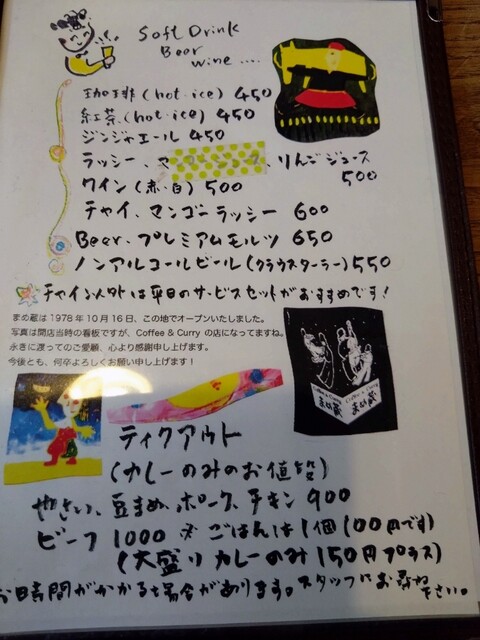 Soft Drink
Beer
wine ....
珈琲 (hot・ice) 450
紅茶 (hot・ice) 450
ジンジャエール 450
ラッシー、りんごジュース
500
ワイン (赤・白) 500
チャイ、マンゴーラッシー 600
Beer、プレミアムモルツ 650
ノンアルコールビール (クラウスターラー) 550
チャイ以外は平日のサービスセットがおすすめです!
まめ蔵は1978年10月16日、この地でオープンいたしました。
写真は開店当時の看板ですが、Coffee & Curry の店になってますね。
永きに渡ってのご愛顧、心より感謝申し上げます。
今後とも、何卒よろしくお願い申し上げます!
Coffee & Curry
まめ蔵
Coffee & Curry
まめ蔵
テイクアウト
(カレーのみのお値段)
やさい、豆まめ、ポーク、チキン 900
ビーフ 1000 ※ごはんは1個100円です)
(大盛りカレーのみ150円プラス)
お時間がかかる場合があります。スタッフにお尋ね下さい。